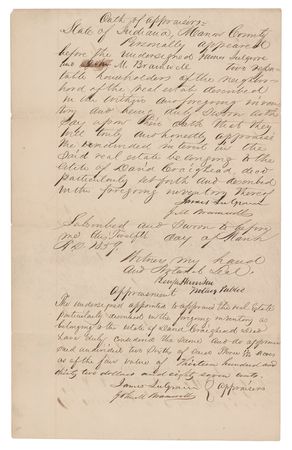 Oath of appraisers
State of Indiana, Marion County
Personally appeared
before the undersigned James
and John M Bramwell two repu-
table householders of the neighbor-
hood of the real estate described
in the within and foregoing inven-
tory and being duly sworn on their
say upon their oath that they
will truly and honestly appraise
the undivided interest in the
said real estate belonging to the
estate of David Craighead decd
particularly set forth and described
in the foregoing inventory thereof
James
J. M Bramwell
Subscribed and Sworn to before
me this Twelfth day of March
A.D. 1859.
Witness my hand
and Notarial Seal.
Notary Public
Appraisement
The undersigned appointed to appraise the real Estate
particularly described in the foregoing inventory as
belonging to the estate of David Craighead decd
have duly considered the same and do appraise
said undivided two
as of the fair value of Thirteen hundred and
thirty two dollars and eighty seven cents.
James
John M Bramwell } appraisers